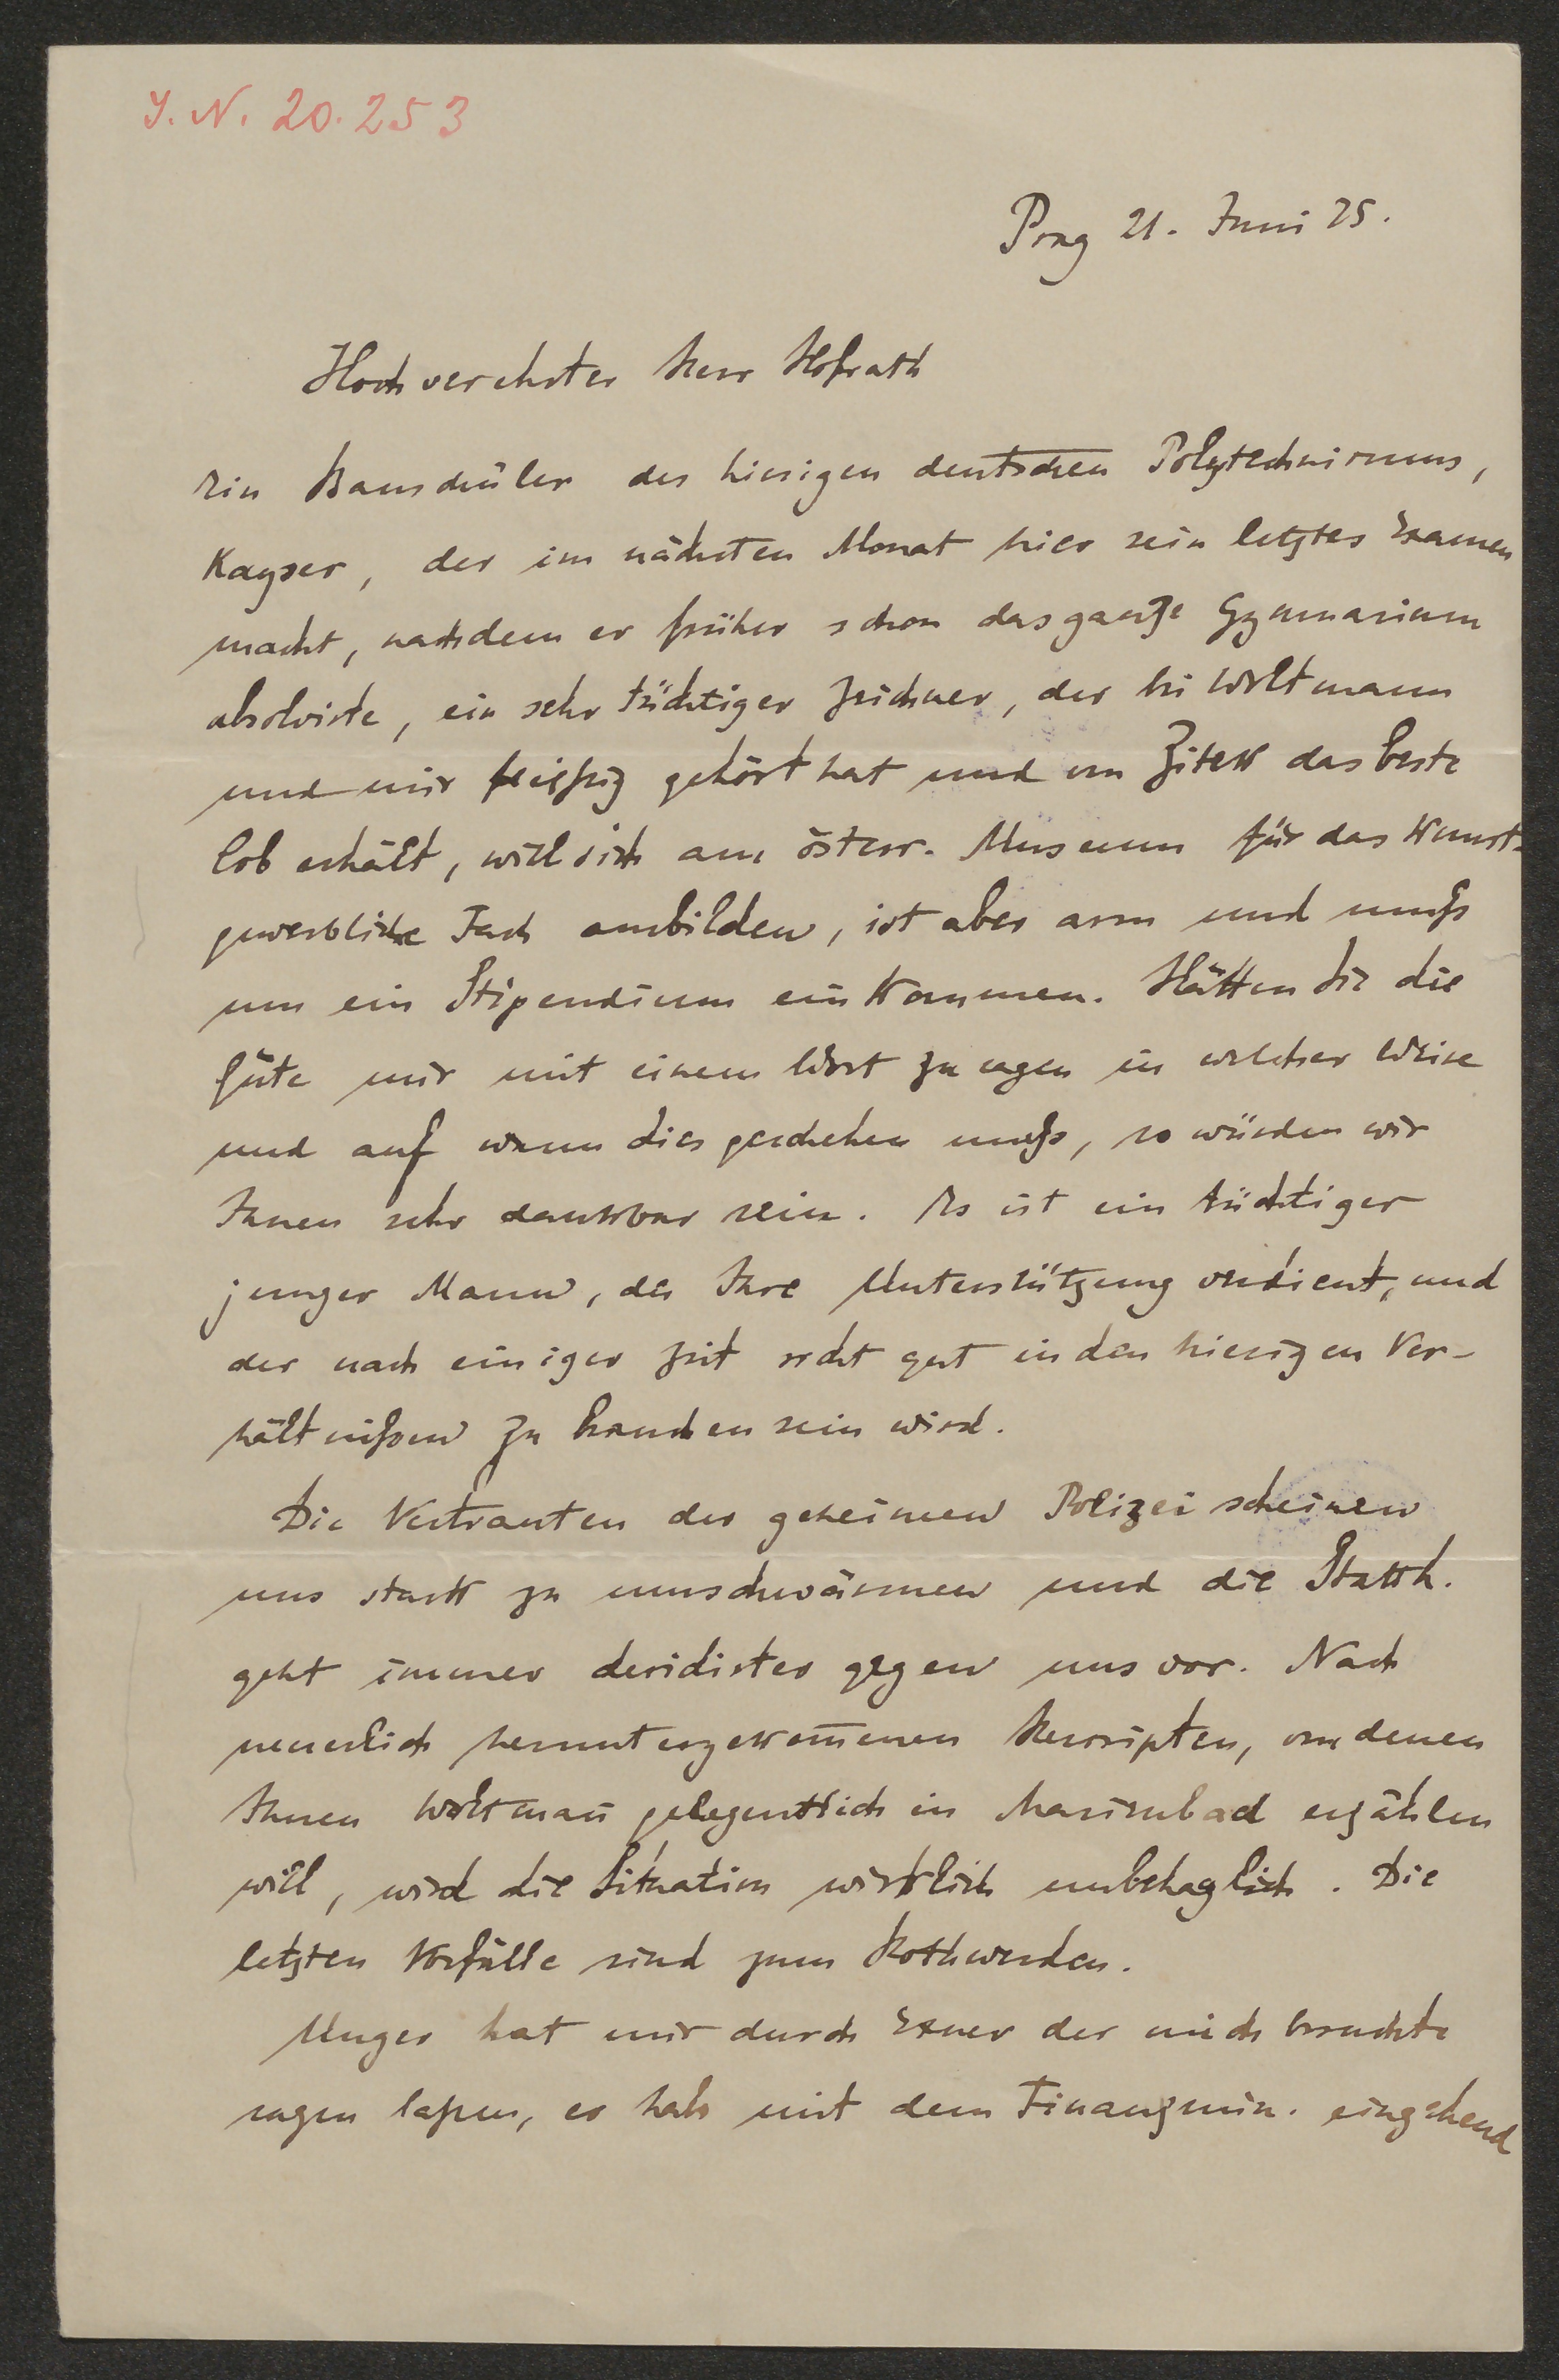 J. N. 20.253
Prag 21. Juni 75.
Hochverehrter Herr Hofrath
Ein Bauschüler des hiesigen deutschen Polytechnicums,
Kayser, der im nächsten Monat hier sein letztes Examen
macht, nachdem er früher schon das ganze Gymnasium
absolvirte, ein sehr tüchtiger Zeichner, der bei Woltmann
und mir fleißig gehört hat und von Zitek das beste
Lob erhält, will sich am österr. Museum für das Kunst-
gewerbliche Fach ausbilden, ist aber arm und muß
um ein Stipendium einkommen. Hätten Sie die
Güte mir mit einem Wort zu sagen in welcher Weise
und auf wann dies geschehen muß, so würden wir
Ihnen sehr dankbar sein. Es ist ein tüchtiger
junger Mann, der Ihre Unterstützung verdient, und
der nach einiger Zeit recht gut in den hiesigen Ver-
hältnißen zu brauchen sein wird.
Die Vertrauten der geheimen Polizei scheinen
uns stark zu umschwärmen und die Statth.
geht immer decidirter gegen uns vor. Nach
neuerlich heruntergekom̅enen Rescripten, von denen
Ihnen Woltman̅ gelegentlich in Marienbad erzählen
will, wird die Situation wirklich unbehaglich. Die
letzten Vorfälle sind zum Rothwerden.
Unger hat mir durch Exner der mich besuchte
sagen laßen, er habe mit dem Finanzmin. eingehend